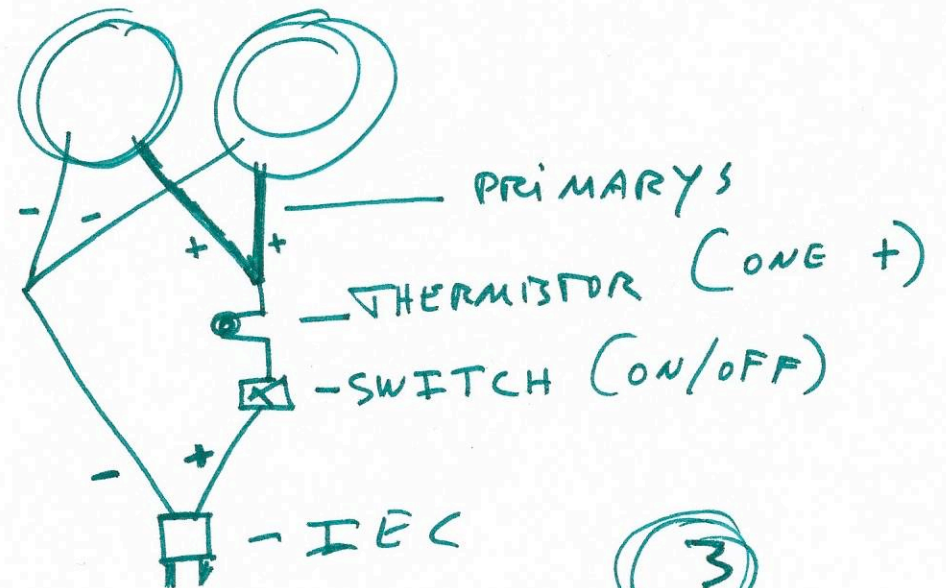 PRiMARYS
THERMISTOR (ONE +)
- -
+ +
-SWITCH (ON/OFF)
- +
- IEC
3